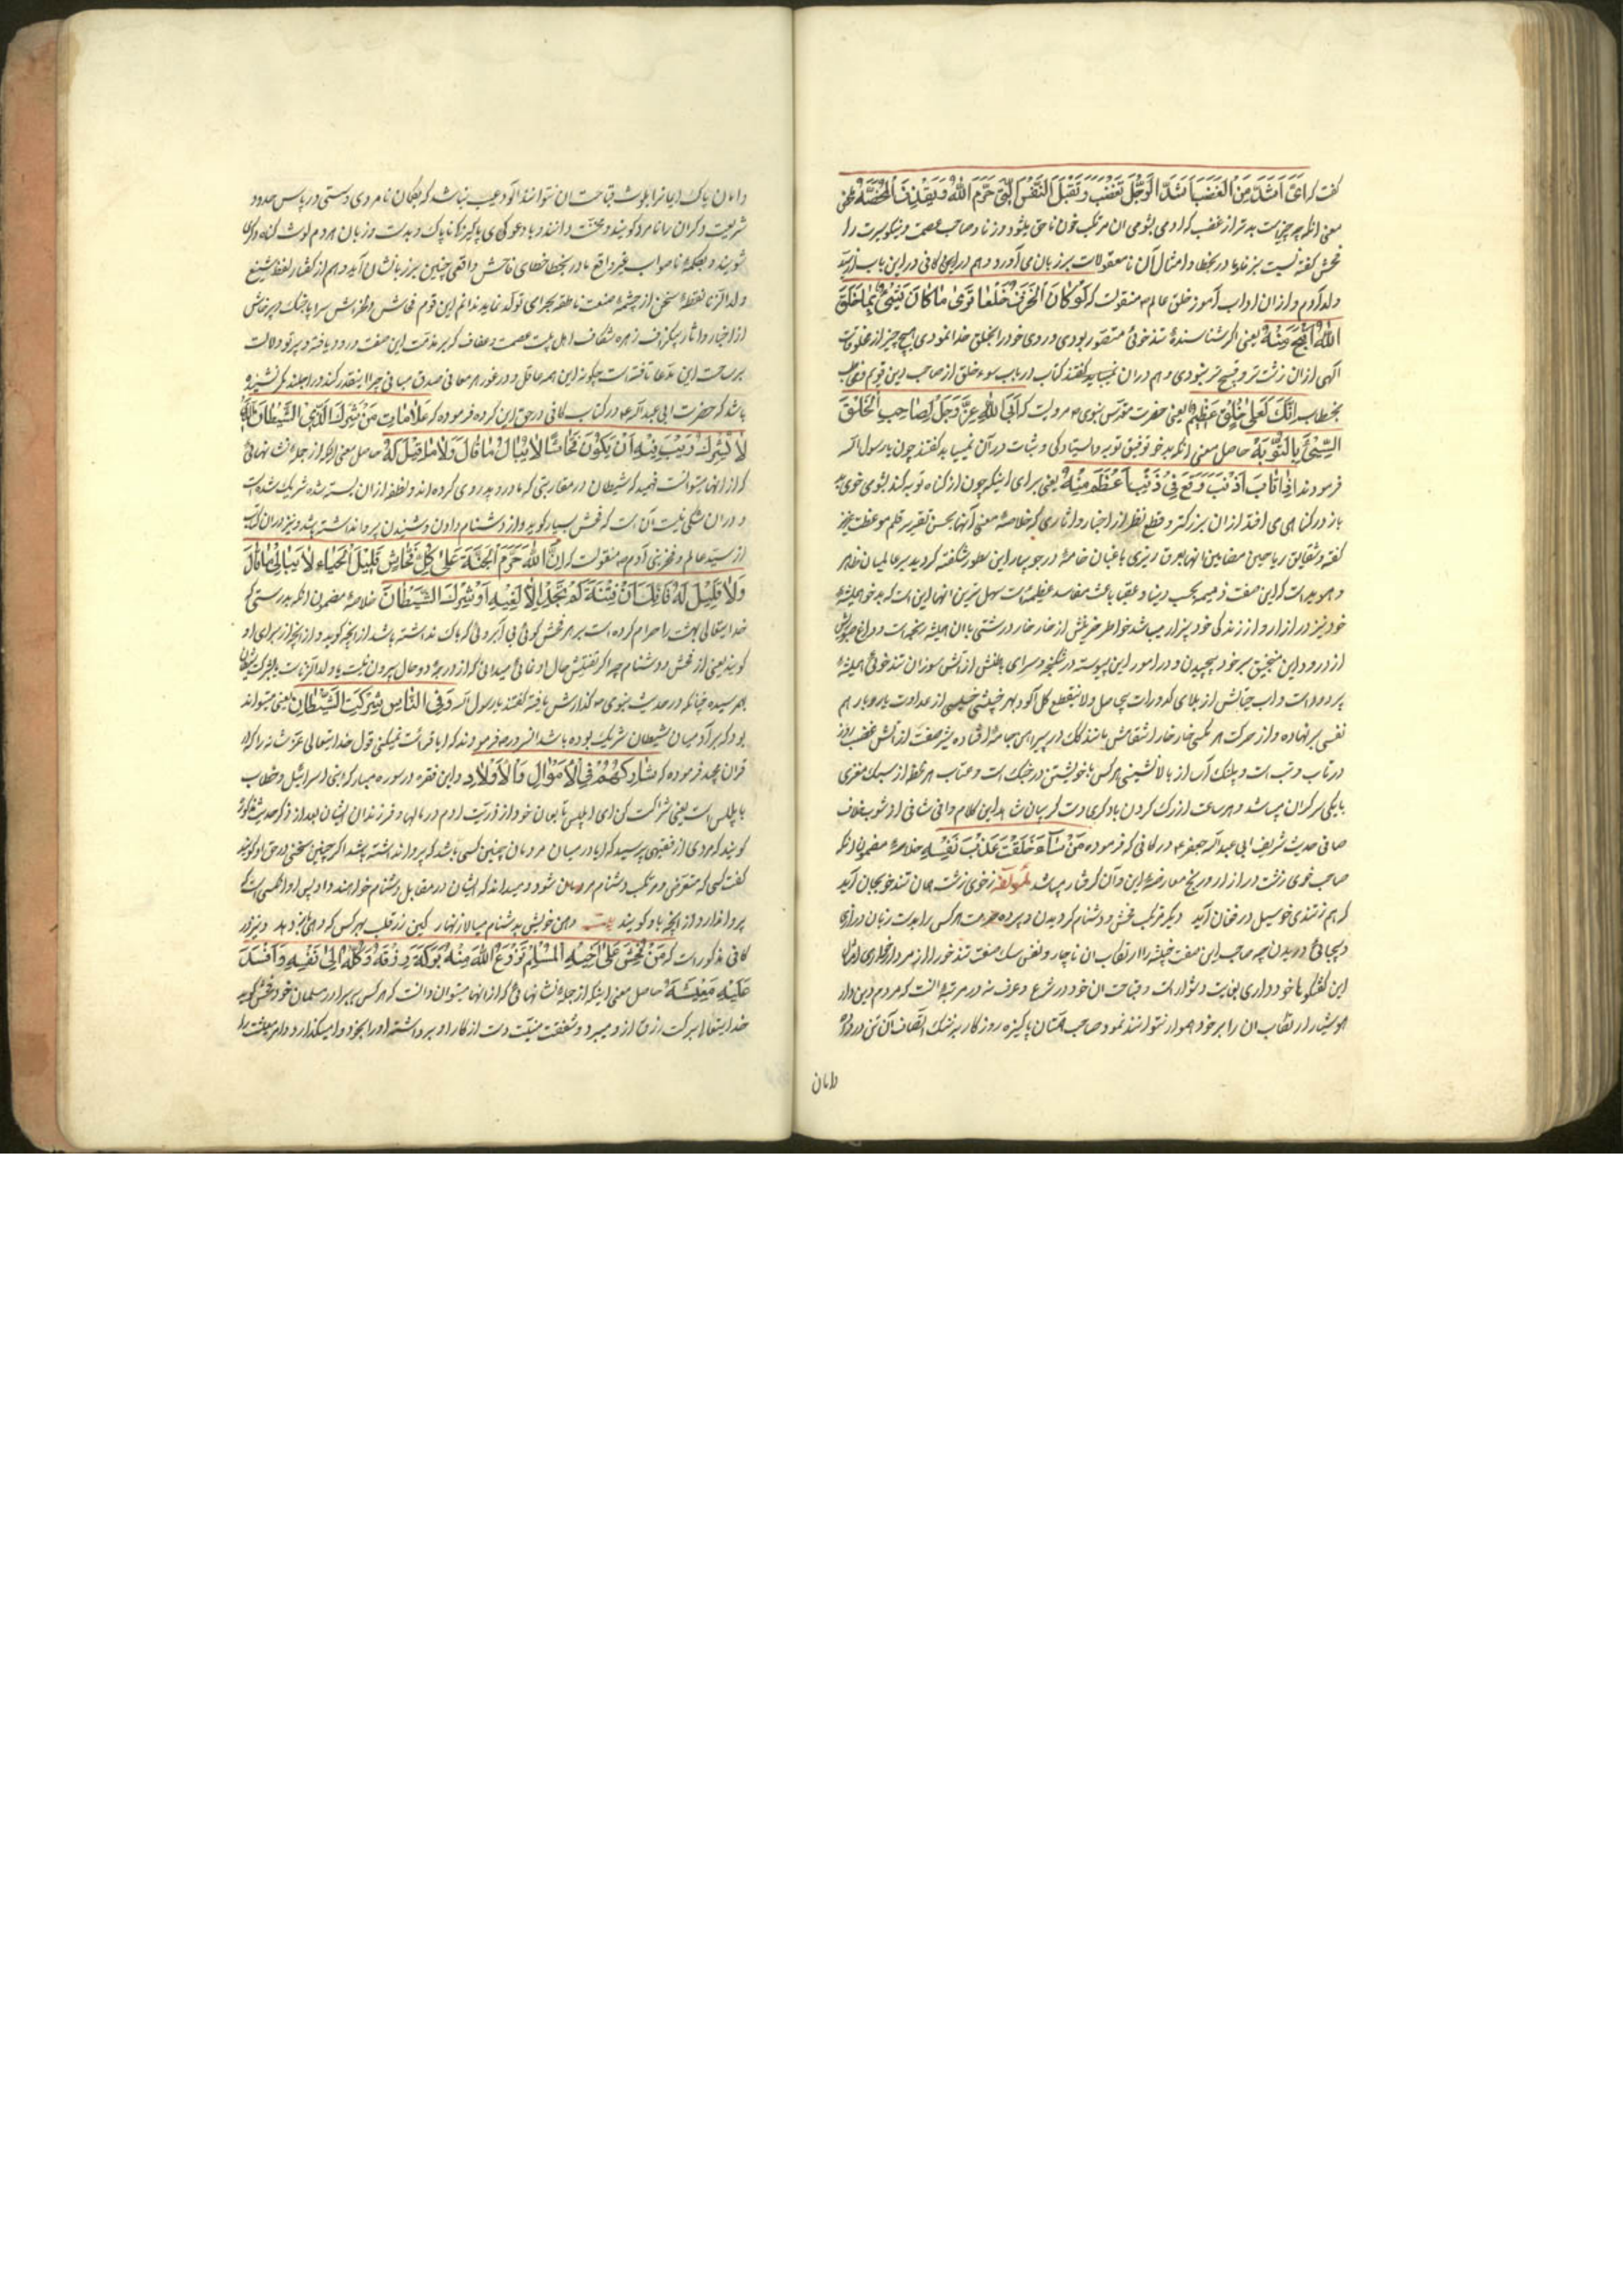 گفت که ای اشد من الغضب اشد الرجل یغضب و یقتل النفس التی حرم الله و یقذف المحصنة
معنی آنکه چه چیز است بدتر از غضب که آدمی بشومی آن مرتکب خون ناحق میشود و زنا و صاحب عصمت و نیکو سیرت را
فحش گفته نسبت بزنا و امثال آن نامعقولات بر زبان می آورد و هم در کافی در این باب از سید
ولد آدم و از آن آداب آموز خلق عالم ص منقولست که لو کان الخرق خلقا یری ما کان شیئ مما خلق
الله اقبح منه یعنی اگر تندخوئی متصور بودی و روی خود را بخلق خدا نمودی هیچ چیز از مخلوقات
الهی از آن زشت تر و قبیح تر نبودی و هم در آن کتاب در باب سوء خلق از صاحب دین قویم و مخاطب
بخطاب انک لعلی خلق عظیم یعنی حضرت مقدس نبوی ص مرویست که ابی الله عز و جل لصاحب الخلق
السیئ بالتوبة حاصل معنی آنکه بدخو توفیق توبه و ایستادگی و ثبات در آن نمییابد گفتند چون یا رسول الله
فرمودند اذا تاب من ذنب وقع فی ذنب اعظم منه یعنی برای اینکه چون از گناه توبه کند بشومی خوی بد
باز در گناهی می افتد از آن بزرگتر و قطع نظر از اخبار و آثاری که خلاصه معنی آنها بحسن تقریر قلم موعظت
گفته و شقایق ریاحین مضامین آنها بعرق ریزی باغبان خامه در جویبار این سطور شکفته گردید بر عالمیان ظاهر
و هویداست که این صفت ذمیمه بحسب دنیا و عقبا باعث مفاسد عظیمه است سهل ترین آنها این است که بدخو همیشه
خود نیز در آزار و از زندگی خود بیزار میباشد خواطر حزینش از خار خار درشتی با آن همیشه
از درد و این منجنیق بر خود پیچیدن و در امور این پیوسته در شکنجه و سرای باطنش از آتش سوزان تندخوئی همیشه
پر دود است و آب حیاتش از بلای کدورات بی حاصل و لاینقطع گل آلود بهر
نفسی بر نهاده و از حرکت هر
در تاب و تب است و پلنگ آسا از بالانشینی هر کس با خویشتن در جنگ است و عتاب هر لحظه از سبک مغزی
با یکی سرگران میباشد و هر ساعت از رک گردن با دیگری دست گریبان شاهد این کلام وافی شافی از شوب خلاف
صافی حدیث شریف ابی عبدالله جعفر ع در کافی که فرموده من ساء خلقه عذب نفسه خلاصه مضمون آنکه
صاحب خوی زشت در آزار و رنج معارضه این و آن گرفتار میباشد لمؤلفه ز خوی زشت جان تندخو بجان آید
که هم ز تندی خو سیل در فغان آید دیگر مرتکب فحش و دشنام گردیدن و پرده حرمت هر کس را بدست زبان درازی
و بیحیائی دریدن چه صاحب این صفت خبیثه را ارتکاب آن ناچار و نفس سگ صفت تندخو را از مردار خواری امثال
این گفتگوها خودداری بغایت دشوار است و قباحت آن خود در شرع و عرف نه در مرتبه ایست که مردم دین دار
هوشیار ارتکاب آن را بر خود هموار توانند نمود و صاحب همتان پاکیزه روزگار بر ننگ اتصاف آن تن در داده
دامان
دامان پاک ایمانرا بلوث قباحت آن توانند آلود عجب نباشد که بگمان نامردی و سستی در پاس حدود
شریعت دیگران را نامرد گویند و مخنث دانند و با دعوی پاکیزگی ناپاک و بدست و زبان مردم لوث گناه دیگری
شویند و بحکمه ناصواب غیر واقع مادر بخطا خطای فاحش واقعی چنین بر زبانشان آید و هم از گفتار لفظ شنیع
ولد الزنا نقطه سخن از چشمه صنعت ناطقه بجرای تولد نماید ندانم این قوم فحاش و طرز سراپا جنگ و پرخاش
از اخبار و آثار اهل بیت عصمت و عفاف که بر مذمت این صفت ورود یافته و پرتو دلالت
بر ساحت این مدعا تافته است چگونه این همه غافل و در غور هر معانی صدق مبانی چرا اینقدر کند و راجلند مگر نشنیده
باشد که حضرت ابی عبدالله ع در کتاب کافی در حق این گروه فرموده که علامات من شرک الذی الشیطان
لا یشرک و ریب فیه ان یکون فحاشا لا یبال ما قال و لا ما قیل له حاصل معنی آنکه از جمله نشانهائی
که از آنها میتوانست فهمید که شیطان در مقاربتی که مادر و پدر وی کرده اند و نطفه از آن بسته شده شریک شده است
و در آن شکی نیست آن است که فحش بسیار گوید و از دشنام دادن و شنیدن پروا نداشته باشد و نیز در آن کتاب
از سید عالم و فخر بنی آدم ص منقولست که ان الله حرم الجنة علی کل فحاش قلیل الحیاء لا یبالی ما قال
و لا قیل له فانک ان فتشته لم تجده الا لغیة او شرک الشیطان خلاصه مضمون آنکه بدرستی که
خدایتعالی بهشت را حرام کرده است بر هر فحش گوئی بی آبروئی که باک نداشته باشد از آنچه گوید و از آنچه از برای او
گویند یعنی از فحش و دشنام چه اگر تفتیش حال او نمائی میدانی که از در دو حال بیرون نیست یا ولد الزناست یا بشرکت شیطان
بهم رسیده چنانکه در حدیث نبوی ص گذارش یافته گفتند یا رسول الله و فی الناس شرکت الشیطان یعنی میتواند
بود که بر آدمیان شیطان شریک بوده باشد آنسرور ص فرمودند که آیا قرائت نمیکنی قول خدایتعالی عزت شانه را که در
قرآن مجید فرموده که شارکهم فی الاموال و الاولاد و این فقره در سوره مبارکه بنی اسرائیل و خطاب
با ابلیس است یعنی شراکت کن ای ابلیس با تابعان خود از ذریت آدم در مالها و فرزندان ایشان بعد از ذکر حدیث مذکور
گویند که مردی از فقیهی پرسید که آیا در میان مردمان چنین کسی باشد که پروا نداشته باشد اگر چنین سخنی در حق او گویند
گفت کسی که متعرض و مرتکب دشنام مردمان شود و میداند که ایشان در مقابل دشنام خواهند داد پس او آنکسی است که
پروا ندارد از آنچه باو گویند بیت دهن خویش بدشنام میالا زنهار کین زر قلب بهر کس که دهی باز دهد و نیز در
کافی مذکور است که من فحش علی اخیه المسلم نزع الله منه برکة رزقه و وکله الی نفسه و افسد
علیه معیشته حاصل معنی اینکه از جمله نشانهائی که از آنها میتوان دانست که هر کس بر برادر مسلمان خود فحش گوید
خدایتعالی برکت رزق از او میبرد و شفقت دست از کار او برداشته او را بخود وا میگذارد و امر معیشت را